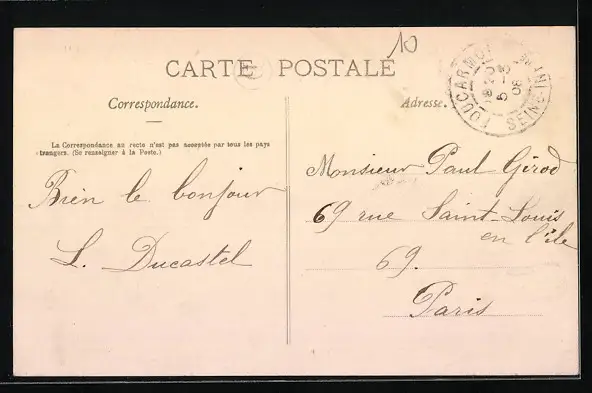 10
CARTE POSTALE
Correspondance.
Adresse.
La Correspondance au recto n'est pas acceptée par tous les pays
étrangers. (Se renseigner à la Poste.)
Bien le bonjour
L. Ducastel
Monsieur Paul Girod
69 rue Saint-Louis
en l'île
69.
Paris
FOUCARMONT
5 - 5
08
SEINE-INF